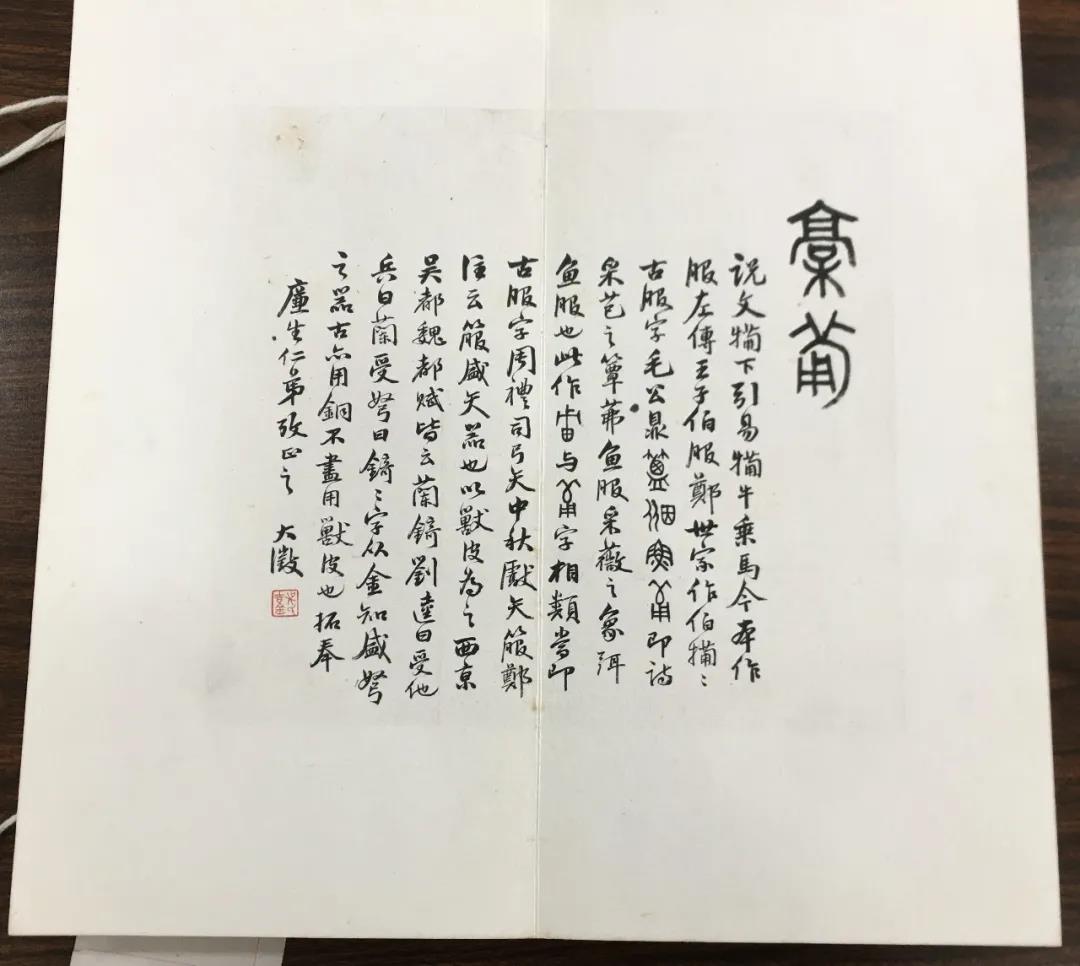 說文犕下引易犕牛乘馬今本作
服左傳王子伯服鄭世家作伯犕〻
古服字毛公鼎簟弼魚葡即詩
采芑之簟茀魚服采薇之象弭
魚服也此作𤰇与葡字相類當即
古服字周禮司弓矢中秋獻矢箙鄭
注云箙盛矢器也以獸皮為之西京
吳都魏都賦皆云蘭錡劉逵曰受他
兵曰蘭受弩曰錡〻字从金知盛弩
之器古亦用銅不盡用獸皮也拓奉
廉生仁弟攷正之 大澂